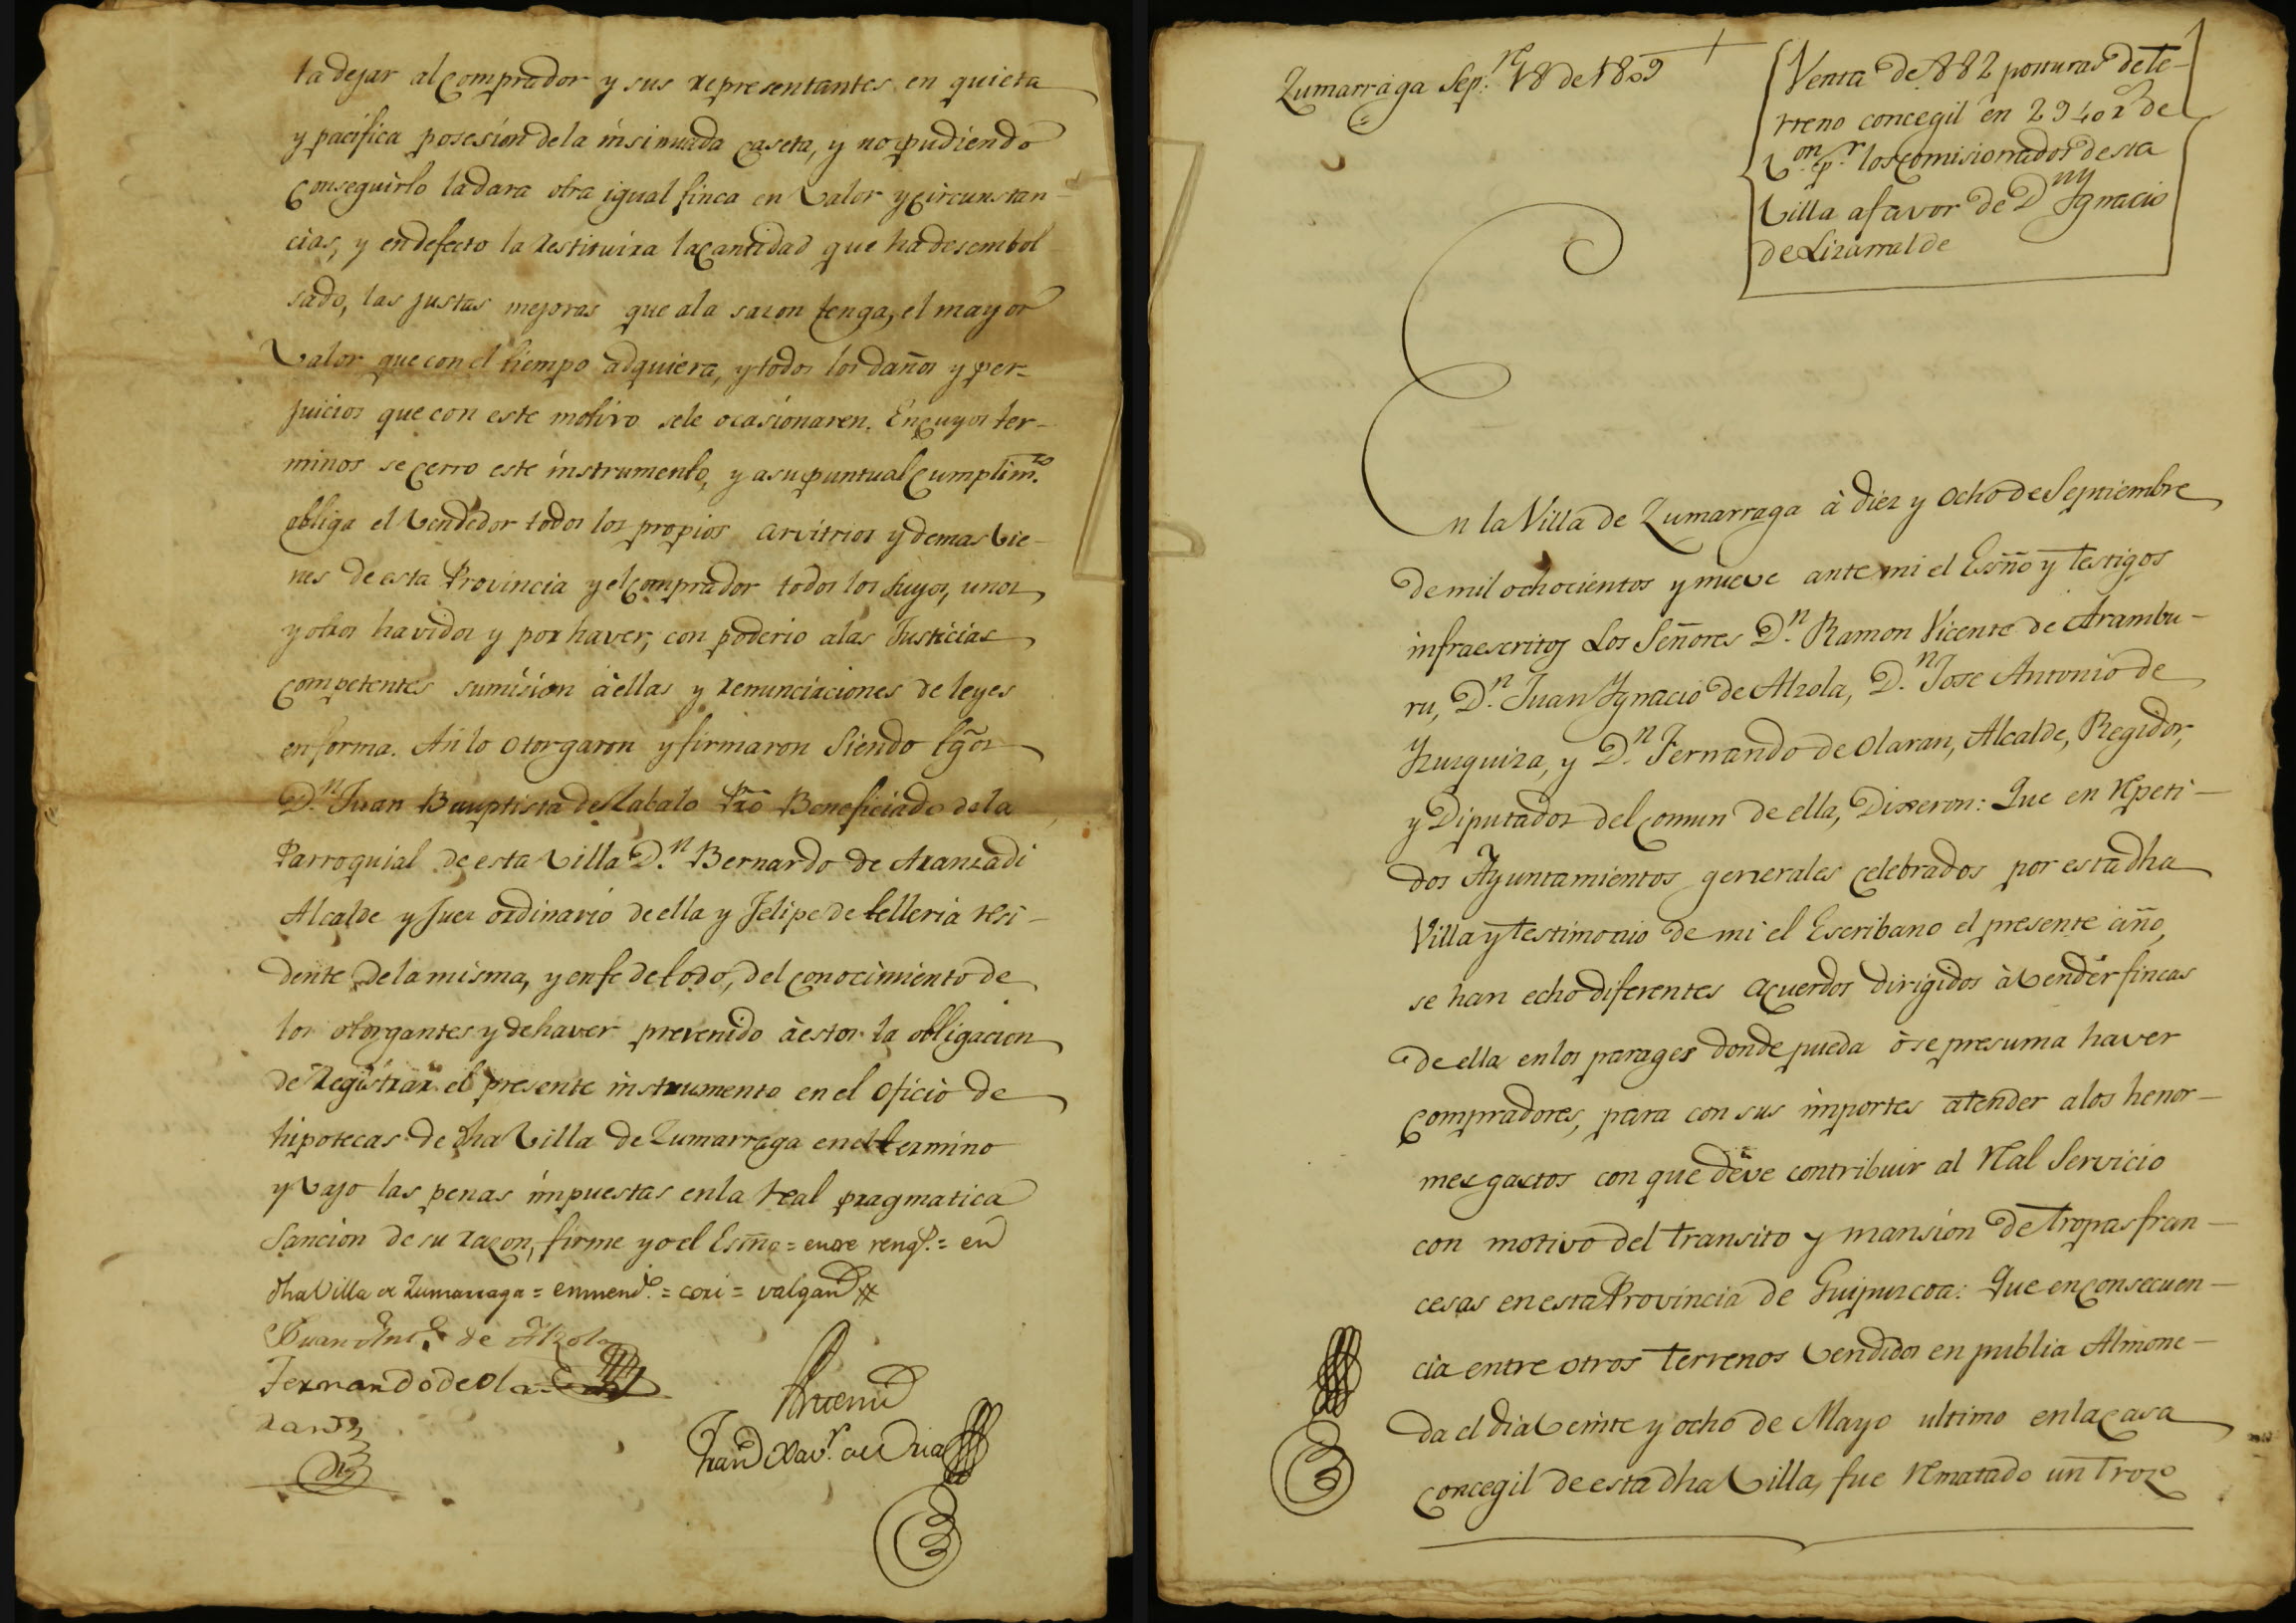 ta dejar al comprador y sus representantes en quieta
y pacifica posesion de la insinuada caseta, y no pudiendo
conseguirlo la dara otra igual finca en valor y circunstan-
cias, y en defecto la restituira la cantidad que ha desembol
sado, las justas mejoras que ala sazon tenga, el mayor
valor que con el tiempo adquiera, y todos los daños y per=
juicios que con este motivo sele ocasionaren. En cuyos ter-
minos se cerro este instrumento, y asu puntual cumplim.to
obliga el vendedor todos los propios arvitrios y demas vie-
nes de esta Provincia y el comprador todos los suyos, unos
y otros havidos y por haver, con poderio alas Justicias
competentes sumision à ellas y renunciaciones de leyes
en forma. Asi lo otorgaron y firmaron siendo tgõs
D.n Juan Bauptista de Zabalo Prõ Beneficiado de la
Parroquial de esta villa D.n Bernardo de Aranzadi
Alcalde y Juez ordinario de ella y Felipe de telleria resi-
dente de la misma, y en fe de todo, del conocimiento de
los otorgantes y de haver prevenido à estos la obligacion
de Registrar el presente instrumento en el oficio de
hipotecas de dha Villa de Zumarraga en el termino
y vajo las penas impuestas en la Real pragmatica
Sancion de su razon, firme yo el Essño = entre reng.s = en
dha Villa de Zumarraga = enmend.o = cozi = valgan
Juan Ant.o de Alzola
Fernando de Ola-
ran
Ante mi
Fran.co Xav.r de Oria
Zumarraga Sep.re 18 de 1809
Venta de 882 posturas de te-
rreno concegil en 29402 r.s de
v.on p.r los comisionados desta
villa a favor de D.n Ygnacio
de Lizarralde
En la Villa de Zumarraga à diez y ocho de Septiembre
de mil ochocientos y nueve ante mi el Essño y testigos
infraescritos Los Señores D.n Ramon Vicente de Arambu-
ru, D.n Juan Ygnacio de Alzola, D.n Jose Antonio de
Yzuzquiza, y D.n Fernando de Olaran, Alcalde, Regidor,
y Diputados del comun de ella, Dixeron: Que en repeti-
dos Ayuntamientos generales celebrados por esta dha
Villa y testimonio de mi el Escribano el presente año,
se han echo diferentes acuerdos dirigidos à vender fincas
de ella en los parages donde pueda ò se presuma haver
compradores, para con sus importes atender a los henor-
mes gastos con que deve contribuir al Real Servicio
con motivo del transito y mansion de tropas fran-
cesas en esta Provincia de Guipuzcoa: Que en consecuen-
cia entre otros terrenos vendidos en publia Almone-
da el dia veinte y ocho de Mayo ultimo en la casa
concegil de esta dha Villa, fue rematado un trozo